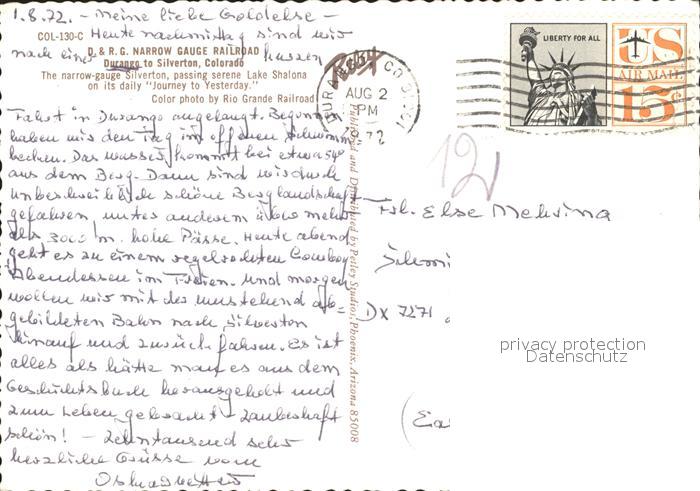 1.8.72. - Meine liebe Goldelse -
COL-130-C Heute nachmittag sind wir
nach einer kurzen
D. & R. G. NARROW GAUGE RAILROAD
Durango to Silverton, Colorado
The narrow-gauge Silverton, passing serene Lake Shalona
on its daily "Journey to Yesterday."
Color photo by Rio Grande Railroad
Fahrt in Durango angelangt. Begonnen
haben wir den Tag im offenen Schwimm
becken. Das Wasser kommt bei etwa 54°
aus dem Berg. Dann sind wir durch
unbeschreiblich schöne Berglandschaft
gefahren, unter anderem über mehr
als 3000 m. hohe Pässe. Heute abend
geht es zu einem regelrechten Cowboy
Abendessen im Freien. Und morgen
wollen wir mit der umstehend ab=
gebildeten Bahn nach Silverton
hinauf und zurück fahren. Es ist
alles als hätte man es aus dem
Geschichtsbuch herausgeholt und
zum Leben gebracht - Zauberhaft
schön! - Zehntausend sehr
herzliche Grüsse vom
Published and Distributed by Petley Studios, Phoenix, Arizona 85008
AUG 2
PM
1972
LIBERTY FOR ALL
US
AIR MAIL
15¢
12
Frl. Else Mehring
DX 7271
privacy protection
Datenschutz
(Ea